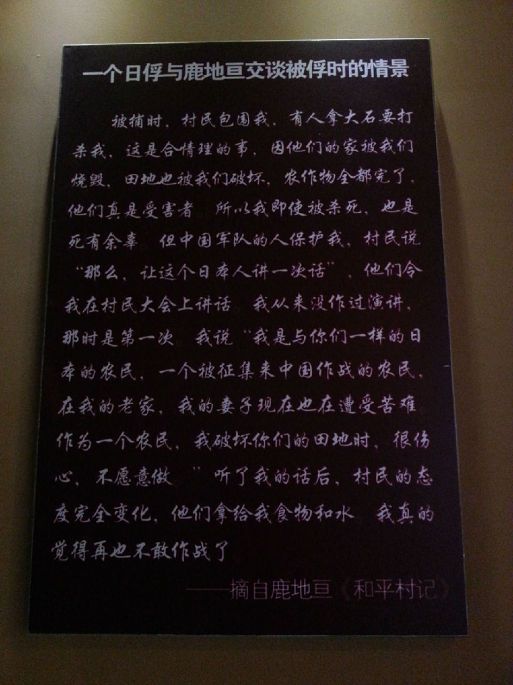 一个日俘与鹿地亘交谈被俘时的情景
被捕时，村民包围我，有人拿大石要打
杀我，这是合情理的事，因他们的家被我们
烧毁，田地也被我们破坏，农作物全都完了，
他们真是受害者 所以我即使被杀死，也是
死有余辜 但中国军队的人保护我，村民说
“那么，让这个日本人讲一次话”，他们令
我在村民大会上讲话 我从来没作过演讲，
那时是第一次 我说“我是与你们一样的日
本的农民，一个被征集来中国作战的农民，
在我的老家，我的妻子现在也在遭受苦难
作为一个农民，我破坏你们的田地时，很伤
心，不愿意做 ”听了我的话后，村民的态
度完全变化，他们拿给我食物和水 我真的
觉得再也不敢作战了
——摘自鹿地亘《和平村记》